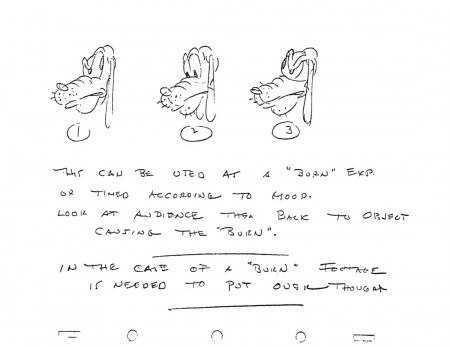 1 2 3
THIS CAN BE USED AS A "BURN" EXP.
OR TIMED ACCORDING TO MOOD.
LOOK AT AUDIENCE THEN BACK TO OBJECT
CAUSING THE "BURN".
IN THE CASE OF A "BURN" FOOTAGE
IS NEEDED TO PUT OVER THOUGHT